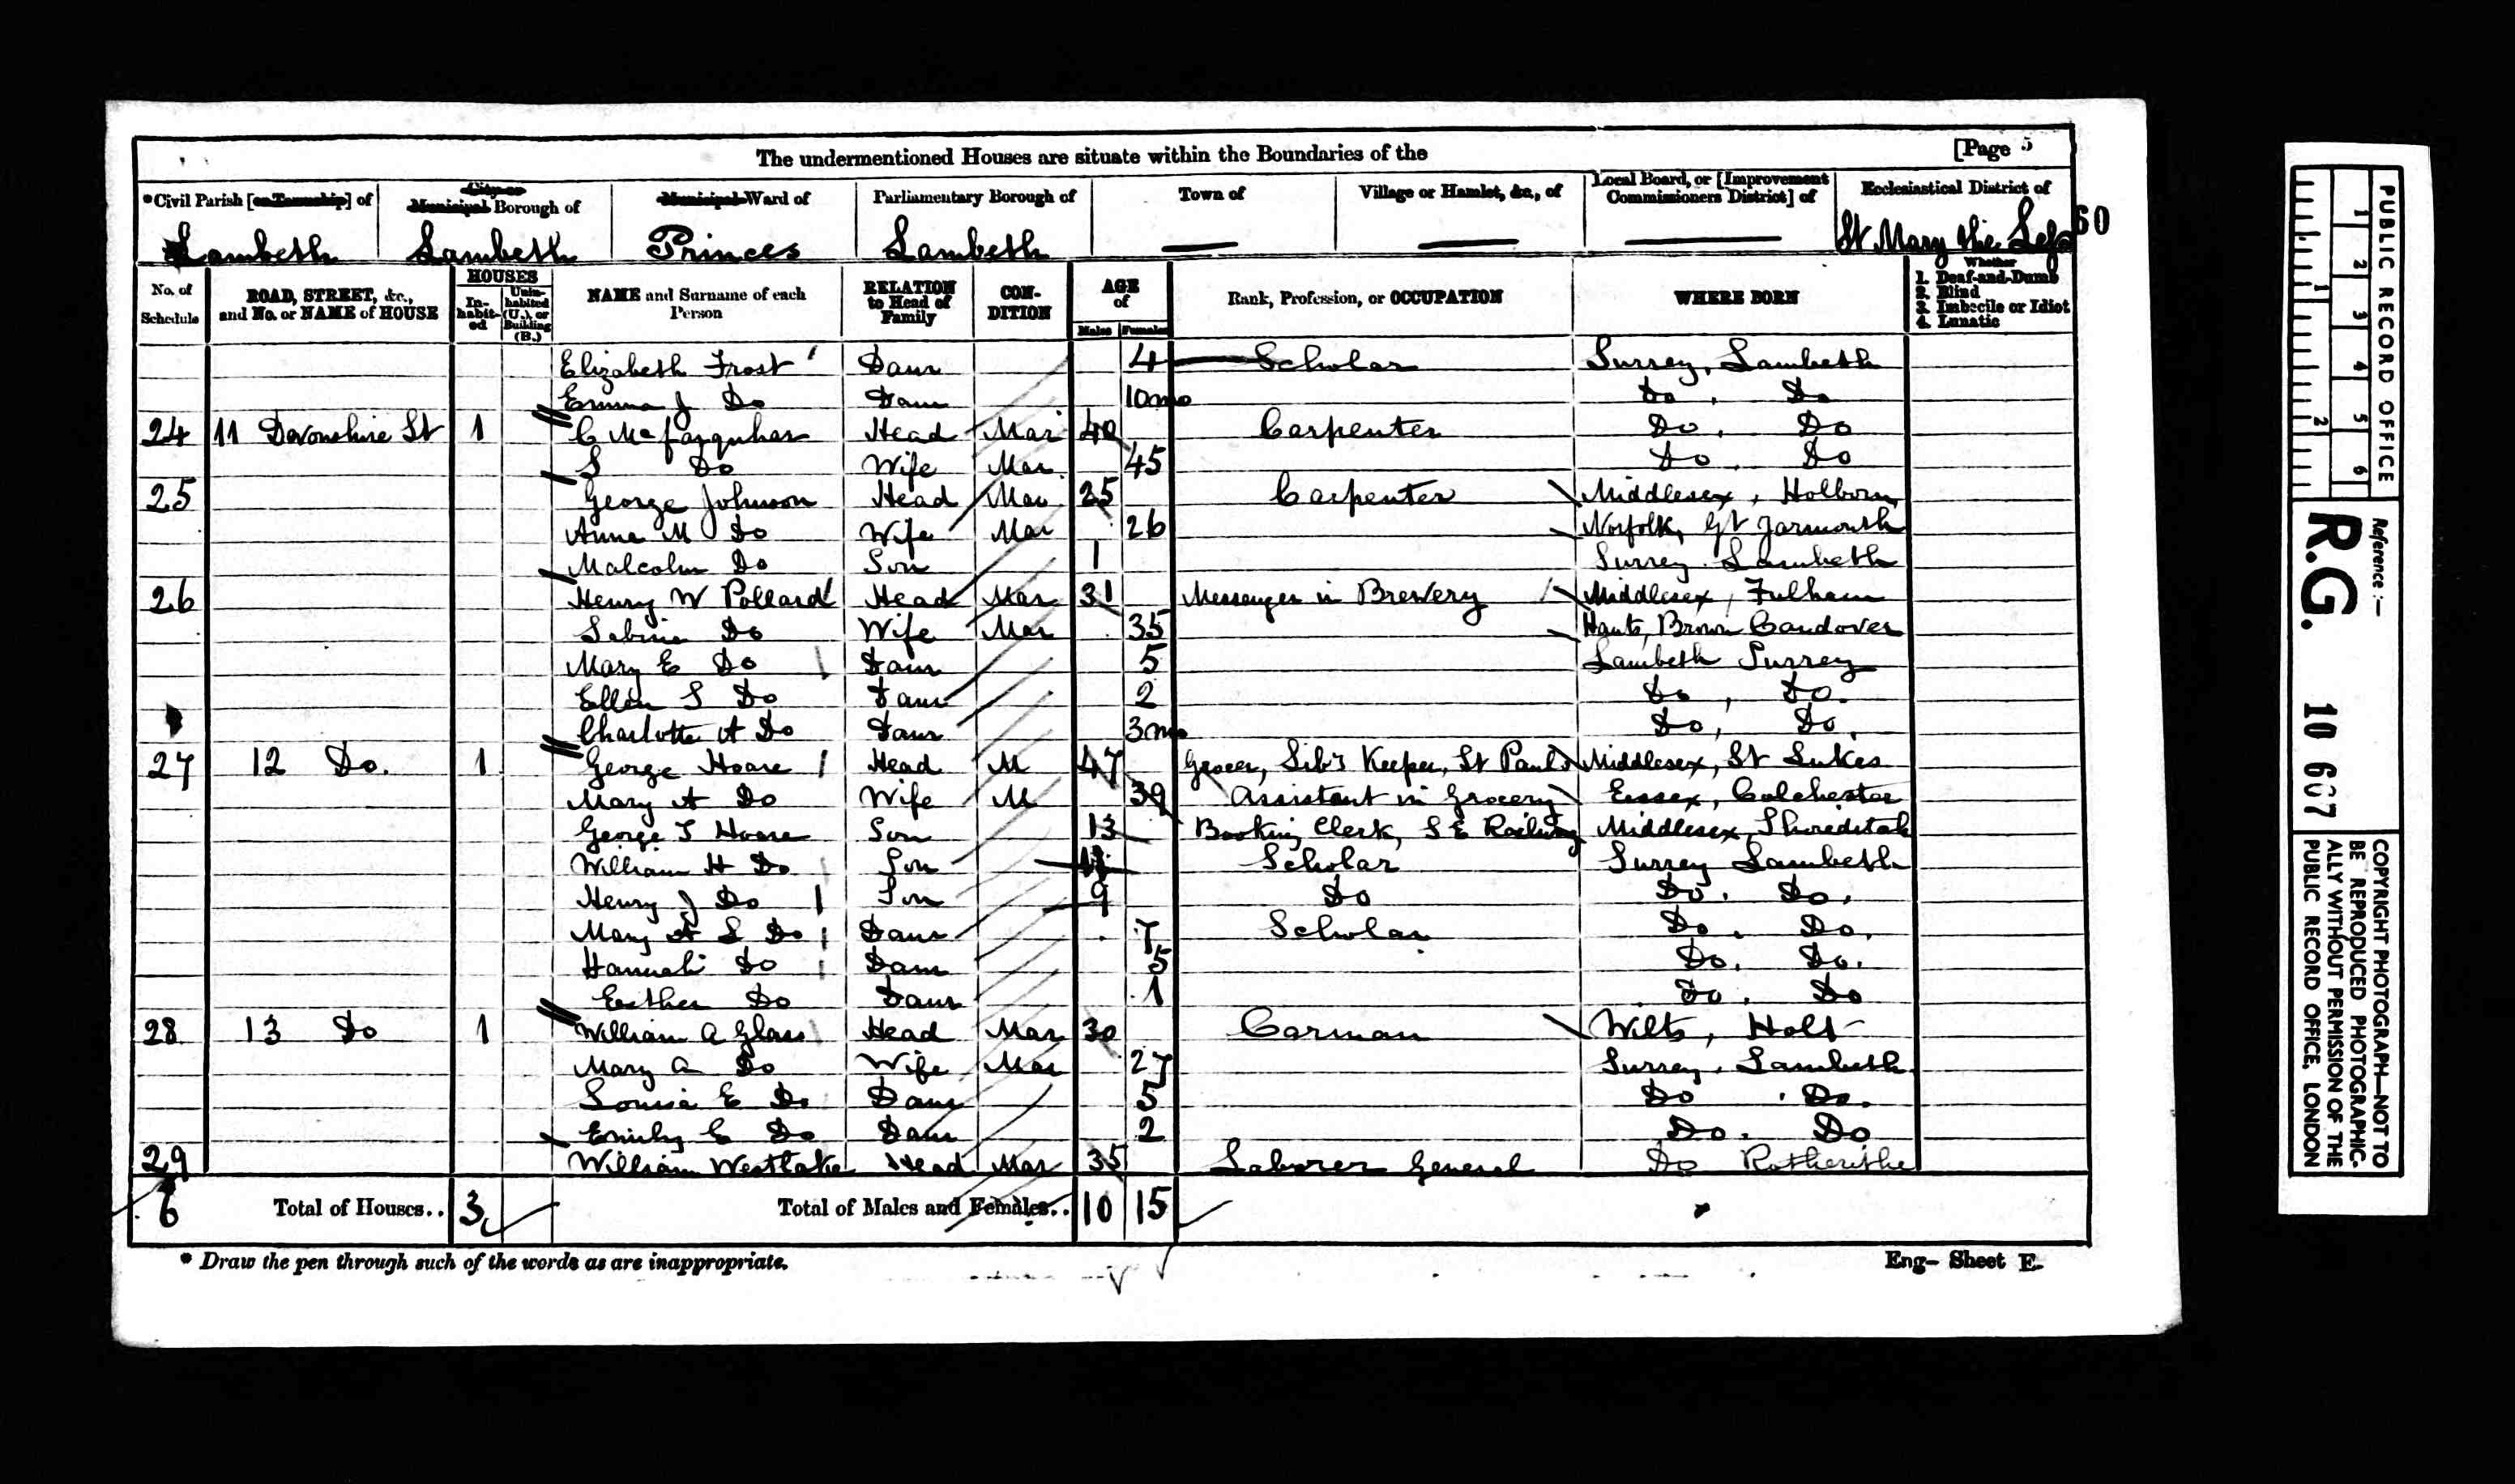 The undermentioned Houses are situate within the Boundaries of the [Page 5
*Civil Parish [or Township] of City or Municipal Borough of Municipal Ward of Parliamentary Borough of Town of Village or Hamlet, &c., of Local Board, or [Improvement Commissioners District] of Ecclesiastical District of
Lambeth Lambeth Princes Lambeth — — — St Mary the Less 60
No. of Schedule ROAD, STREET, &c., and No. or NAME of HOUSE HOUSES Inhabited Uninhabited (U.), or Building (B.) NAME and Surname of each Person RELATION to Head of Family CONDITION AGE of Males Females Rank, Profession, or OCCUPATION WHERE BORN Whether 1. Deaf-and-Dumb 2. Blind 3. Imbecile or Idiot 4. Lunatic
Elizabeth Frost Daur 4 Scholar Surrey, Lambeth
Emma J Do Daur 10mo Do. Do
24 11 Devonshire St 1 C McFarquhar Head Mar 40 Carpenter Do. Do
S Do Wife Mar 45 Do. Do
25 George Johnson Head Mar 25 Carpenter Middlesex, Holborn
Anna M Do Wife Mar 26 Norfolk, Gt Yarmouth
Malcolm Do Son 1 Surrey. Lambeth
26 Henry W Pollard Head Mar 31 Messenger in Brewery Middlesex, Fulham
Sabina Do Wife Mar 35 Hants, Brown Candover
Mary E Do Daur 5 Lambeth Surrey
Ellen S Do Daur 2 Do, Do.
Charlotte A Do Daur 3mo Do, Do.
27 12 Do. 1 George Hoare Head M 47 Grocer, Keeper, St Pauls Middlesex, St Lukes
Mary A Do Wife M 39 Assistant in Grocery Essex, Colchester
George T Hoare Son 13 Booking Clerk, S E Railway Middlesex, Shoreditch
William H Do Son 11 Scholar Surrey Lambeth
Henry J Do Son 9 Do Do. Do.
Mary A S Do Daur 7 Scholar Do. Do.
Hannah Do Daur 5 Do. Do.
Esther Do Daur 1 Do. Do
28 13 Do 1 William A Glass Head Mar 30 Carman Wilts, Holt
Mary A Do Wife Mar 27 Surrey. Lambeth.
Louisa E Do Daur 5 Do. Do.
Emily C Do Daur 2 Do. Do
29 William Westlake Head Mar 35 Laborer General Do Rotherithe
6 Total of Houses.. 3 Total of Males and Females.. 10 15
* Draw the pen through such of the words as are inappropriate.
Eng- Sheet E.
PUBLIC RECORD OFFICE
1 2 3 4 5 6
1 2
Reference:-
R.G. 10 667
COPYRIGHT PHOTOGRAPH—NOT TO
BE REPRODUCED PHOTOGRAPHIC-
ALLY WITHOUT PERMISSION OF THE
PUBLIC RECORD OFFICE, LONDON